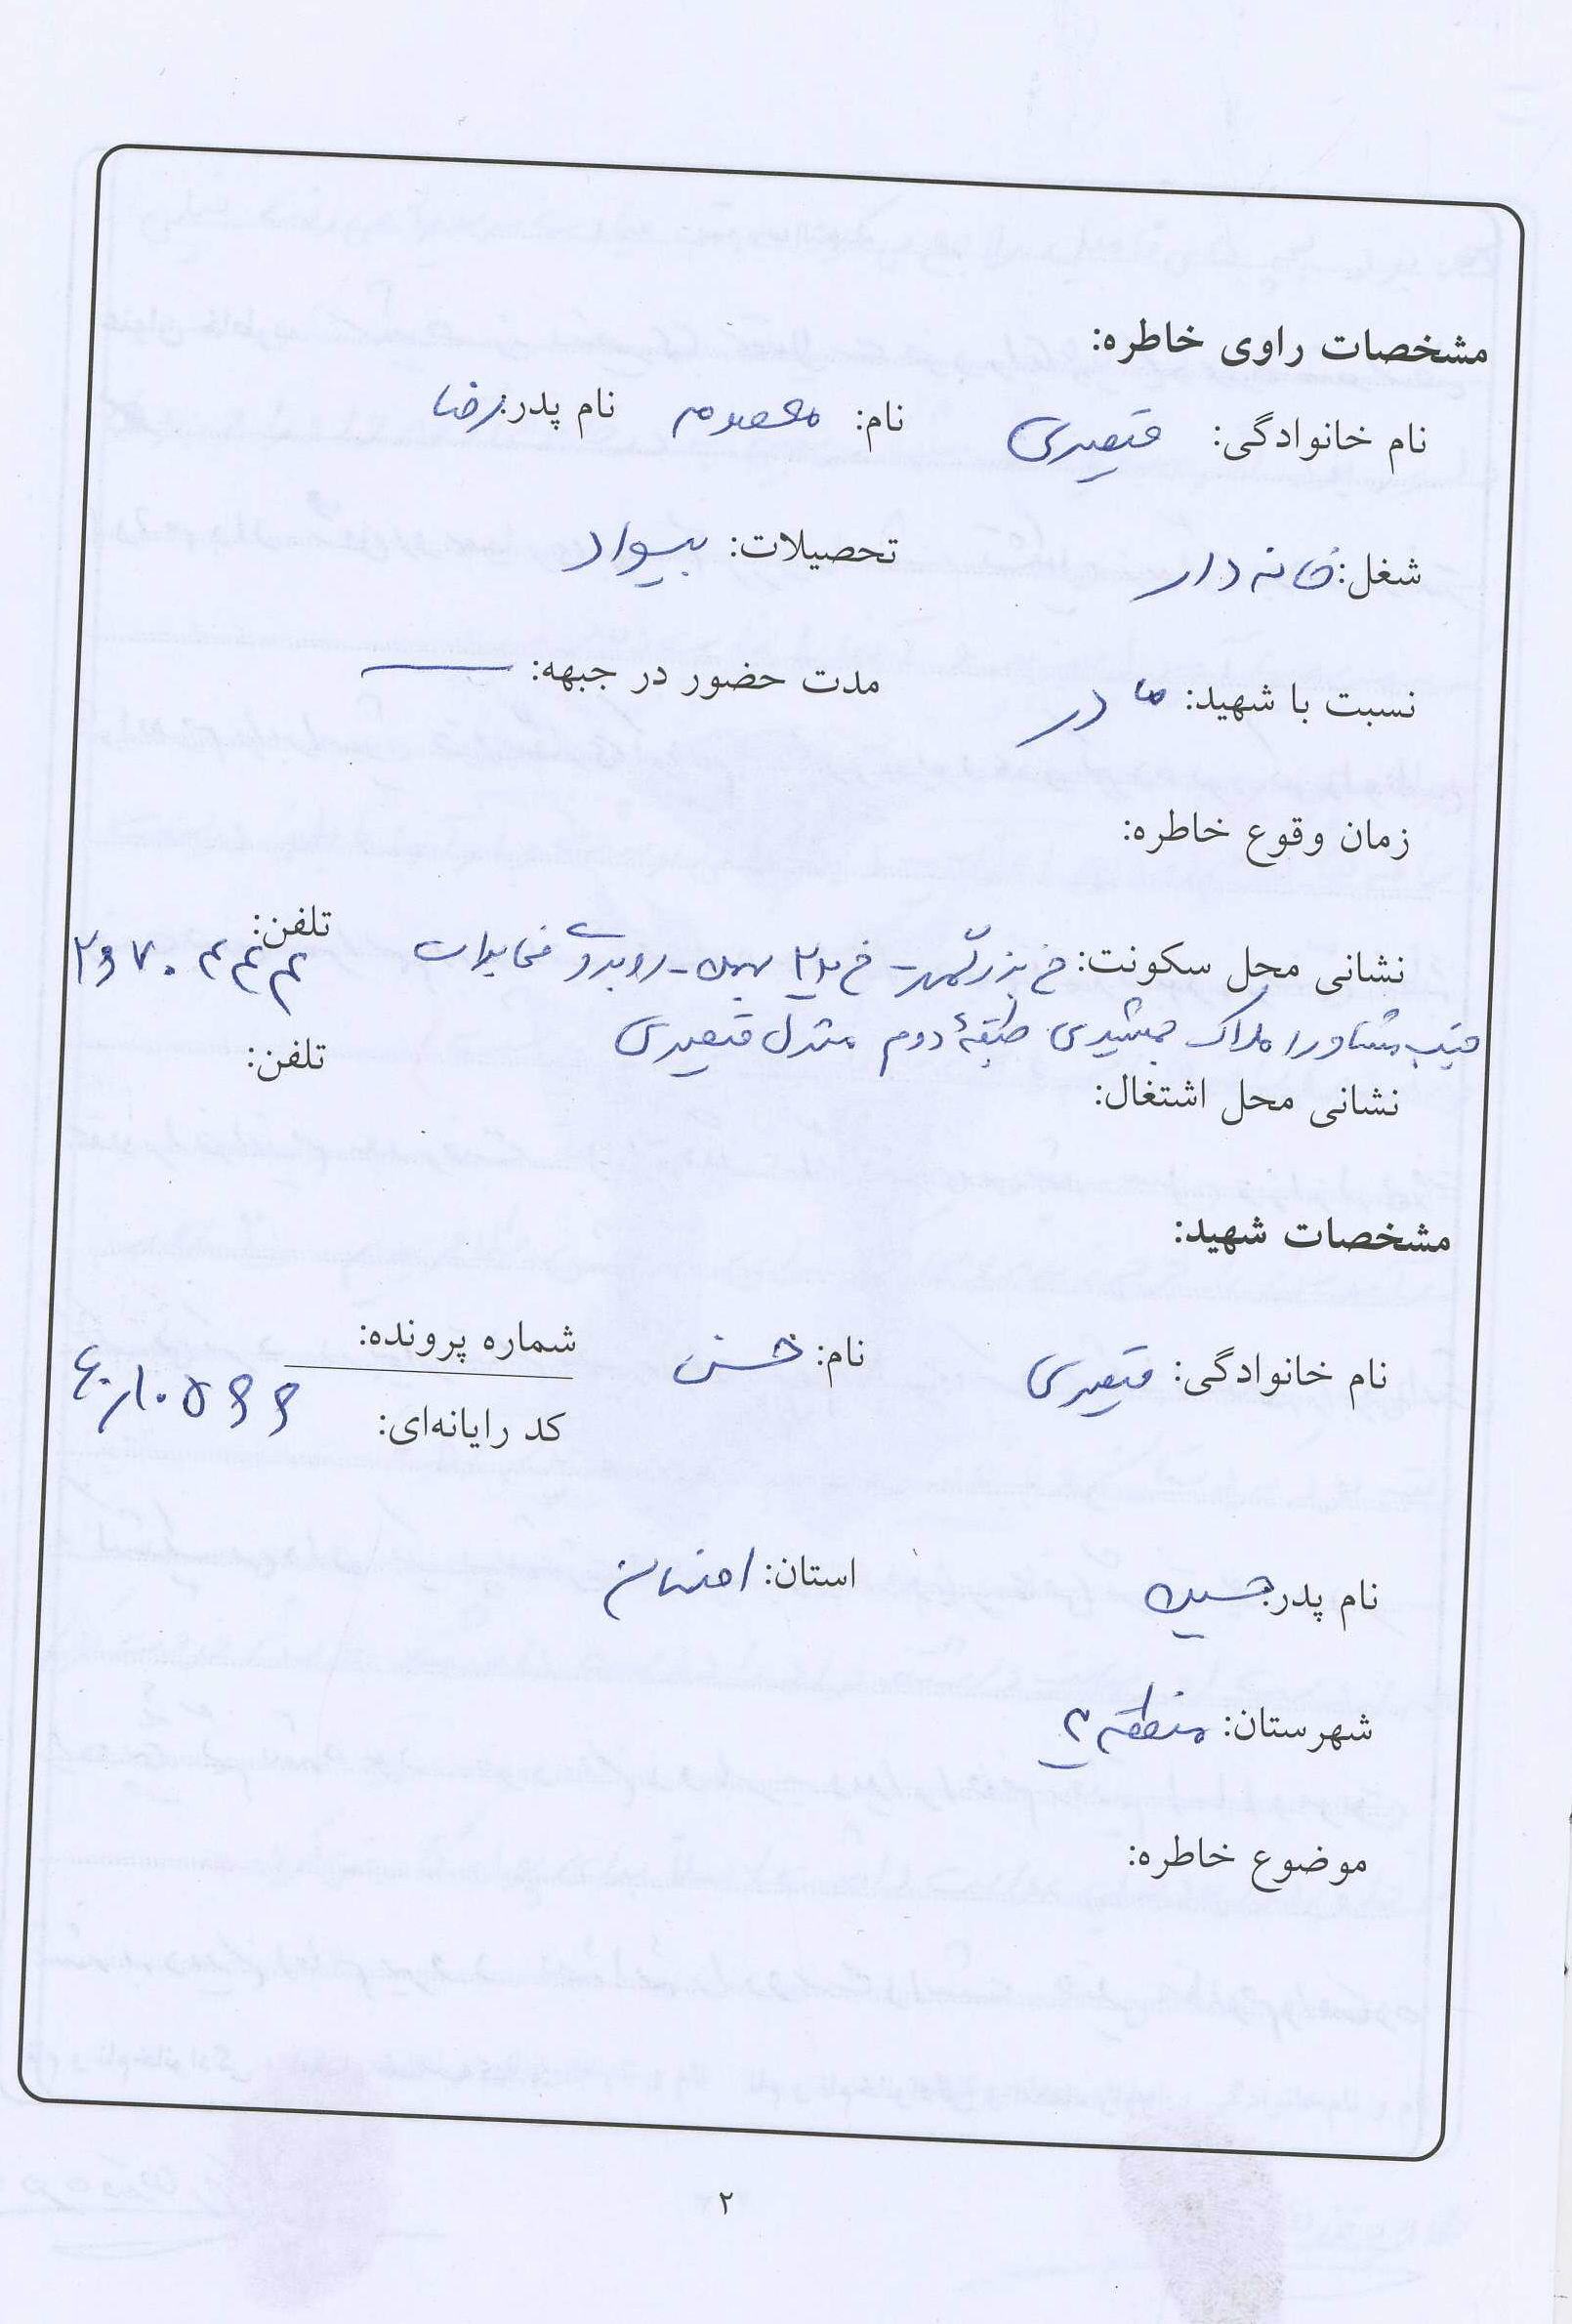 مشخصات راوی خاطره:
نام خانوادگی: قیصری نام: معصومه نام پدر: رضا
شغل: خانه دار تحصیلات: بیسواد
نسبت با شهید: مادر مدت حضور در جبهه: ــ
زمان وقوع خاطره:
نشانی محل سکونت: خ بزرگمهر - خ ۲۲ بهمن - روبروی مخابرات تلفن:
جنب مشاور املاک جمشیدی طبقه دوم منزل قیصری
نشانی محل اشتغال: تلفن:
مشخصات شهید:
نام خانوادگی: قیصری نام: حسن شماره پرونده:
کد رایانه‌ای:
نام پدر: حسین استان: اصفهان
شهرستان: منطقه ۲
موضوع خاطره:
۲